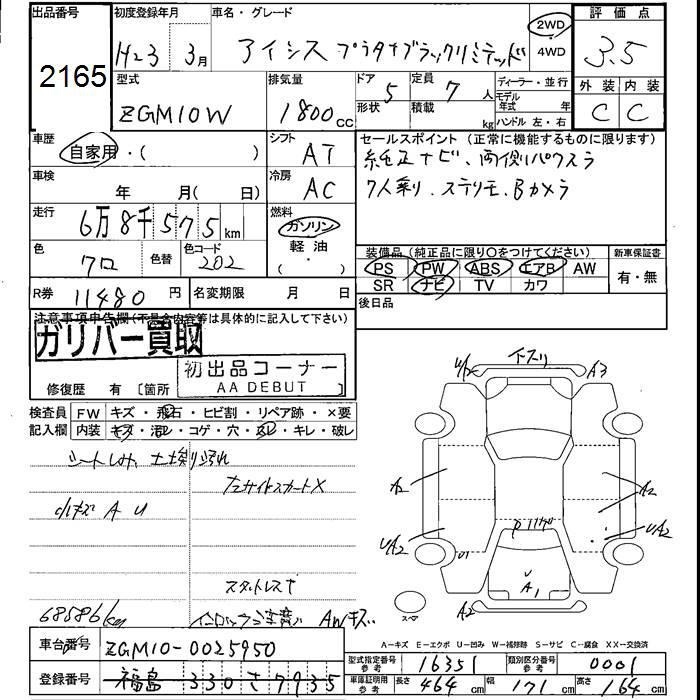 出品番号 初度登録年月 車名・グレード 2WD 評価点
2165 H23 3月 アイシス プラタナブラックリミテッド 4WD 3.5
型式 排気量 ドア 定員 ディーラー・並行 外装 内装
ZGM10W 1800cc 5 7人 モデル年式 年 C C
形状 積載 kg ハンドル 左・右
車歴 シフト セールスポイント(正常に機能するものに限ります)
自家用・( ) AT 純正ナビ、両側パワスラ
車検 冷房 7人乗り、ステリモ、Bカメラ
年 月( 日) AC
走行 燃料
6万8千575km ガソリン
色 色替 色コード 軽油 装備品(純正品に限り○をつけてください) 新車保証書
クロ 202 ・( ) PS PW ABS エアB AW 有・無
R券 11480円 名変期限 月 日 SR ナビ TV カワ
注意事項申告欄(不具合内容等は具体的に記入して下さい) 後日品
ガリバー買取
初出品コーナー
AA DEBUT
修復歴 有 [箇所
検査員 FW キズ・飛石・ヒビ割・リペア跡・×要
記入欄 内装 キズ・汚レ・コゲ・穴・スレ・キレ・破レ
シートしみ、土埃り汚れ
左サイドスカートX
小キズ A U
スタットレス
68586km AWキズ
下スリ
A3
A2
A2
UA2
UA2
U1
U
A1
A2
スペア
車台番号 ZGM10-0025950
登録番号 福島 330 さ 7935
A－キズ E－エクボ U－凹み W－補修跡 S－サビ C－腐食 XX－交換済
型式指定番号 参考 16351 類別区分番号 参考 0001
車庫証明用 参考 長さ 464cm 幅 171cm 高さ 164cm